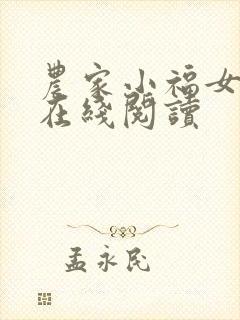 農家小福女
在綫閱讀
孟永民